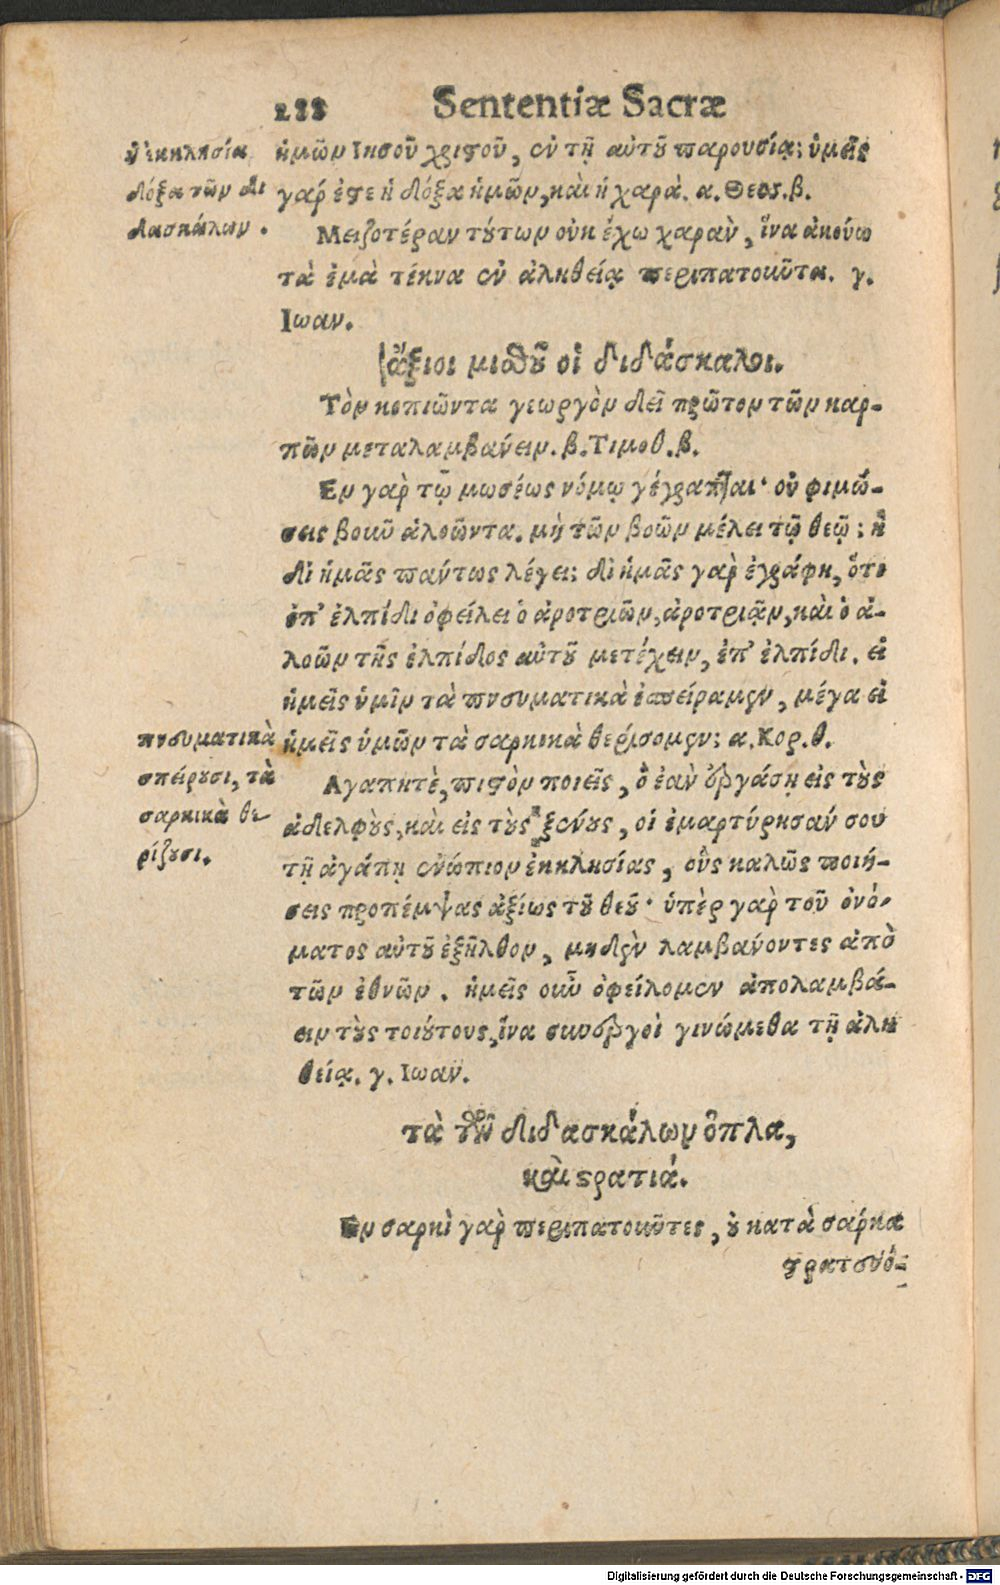 188 Sententiæ Sacræ
ἡ ἐκκλησία
δόξα τῶν δι
δασκάλων.
ἡμῶν Ιησοῦ χριστοῦ, ἐν τῇ αὐτοῦ παρουσίᾳ; ὑμεῖς
γάρ ἐστε ἡ δόξα ἡμῶν, καὶ ἡ χαρὰ. α. Θεσ. β.
Μειζοτέραν τούτων οὐκ ἔχω χαρὰν, ἵνα ἀκούω
τὰ ἐμὰ τέκνα ἐν ἀληθείᾳ περιπατοῦντα. γ.
Ιωαν.
ἄξιοι μισθοῦ οἱ διδάσκαλοι.
Τὸν κοπιῶντα γεωργὸν δεῖ πρῶτον τῶν καρ-
πῶν μεταλαμβάνειν. β. Τιμοθ. β.
Εν γαρ τῷ μωσέως νόμῳ γέγραπται· οὐ φιμώ-
σεις βοῦν ἀλοῶντα. μὴ τῶν βοῶν μέλει τῷ θεῷ; ἢ
δι ἡμᾶς πάντως λέγει; δι ἡμᾶς γαρ ἐγράφη, ὅτι
ἐπ’ ἐλπίδι ὀφείλει ὁ ἀροτριῶν, ἀροτριᾷν, καὶ ὁ ἀ-
λοῶν τῆς ἐλπίδος αὐτοῦ μετέχειν, ἐπ’ ἐλπίδι. εἰ
ἡμεῖς ὑμῖν τὰ πνευματικὰ ἐσπείραμεν, μέγα εἰ
ἡμεῖς ὑμῶν τὰ σαρκικὰ θερίσομεν; α. Κορ. θ.
πνευματικὰ
σπείρουσι, τὰ
σαρκικὰ θε
ρίζουσι.
Αγαπητὲ, πιστὸν ποιεῖς, ὃ ἐὰν ἐργάσῃ εἰς τοὺς
ἀδελφοὺς, καὶ εἰς τοὺς ξένους, οἱ ἐμαρτύρησάν σου
τῇ ἀγάπῃ ἐνώπιον ἐκκλησίας, οὓς καλῶς ποιή-
σεις προπέμψας ἀξίως τοῦ θεοῦ· ὑπὲρ γαρ τοῦ ὀνό-
ματος αὐτοῦ ἐξῆλθον, μηδὲν λαμβάνοντες ἀπὸ
τῶν ἐθνῶν. ἡμεῖς οὖν ὀφείλομεν ἀπολαμβά-
ειν τοὺς τοιούτους, ἵνα συνεργοὶ γινώμεθα τῇ ἀλη
θείᾳ. γ. Ιωαν.
τὰ τῶν διδασκάλων ὅπλα,
καὶ στρατιά.
Εν σαρκὶ γαρ περιπατοῦντες, οὐ κατὰ σάρκα
στρατευό-
Digitalisierung gefördert durch die Deutsche Forschungsgemeinschaft - DFG